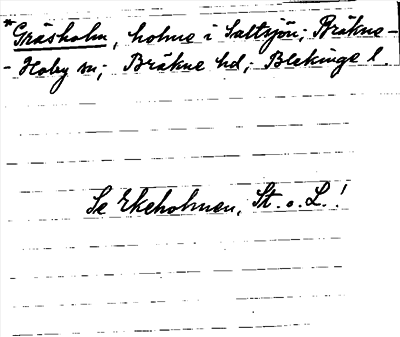 *Gräsholm, holme i Saltsjön; Bräkne-
- Hoby sn; Bräkne hd; Blekinge l.
Se Ekeholmen, St. o. L.!